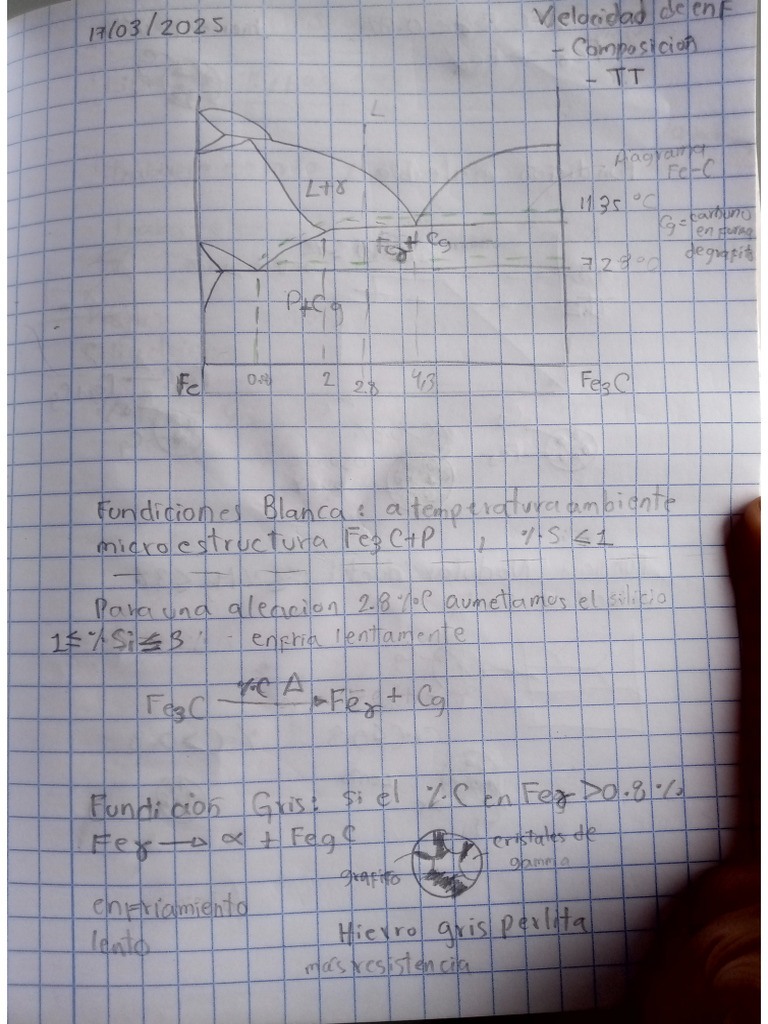 17/03/2025
Velocidad de enf
- Composicion
- TT
L
Diagrama
Fe-C
L+γ
1135 °C
Cg = carbono
en forma
de grafito
Feγ + Cg
728°C
P+Cg
Fe
2
2.8
4,3
Fe3C
Fundiciones Blanca: a temperatura ambiente
microestructura Fe3C+P , % Si ≤1
Para una aleacion 2.8 %C aumetamos el silicio
1≤ % Si ≤ 3 enfria lentamente
Fe3C %C Δ Feγ + Cg
Fundicion Gris: si el %C en Feγ >0.8 %
Feγ → α + Fe3C
cristales de
gamma
grafito
enfriamiento
lento
Hierro gris perlita
mas resistencia